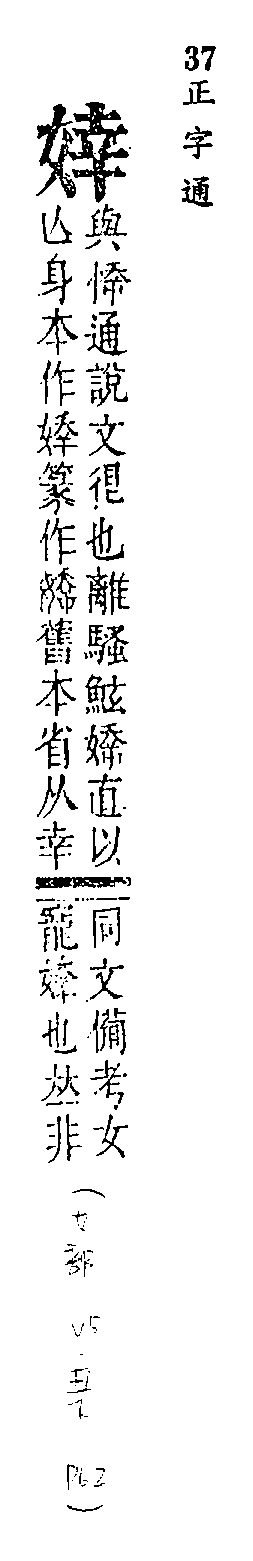 37 正字通
婞
與悻通說文很也離騷鮌婞直以
亾身本作婞篆作舊本省从幸
同文備考女
寵婞也𠀤非
(女部 V5 丑下 P62)